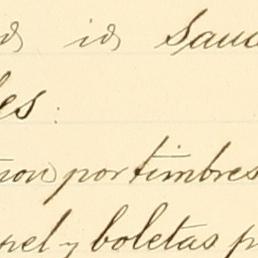 id sauc
les:
non por timbres
pel y boletas p